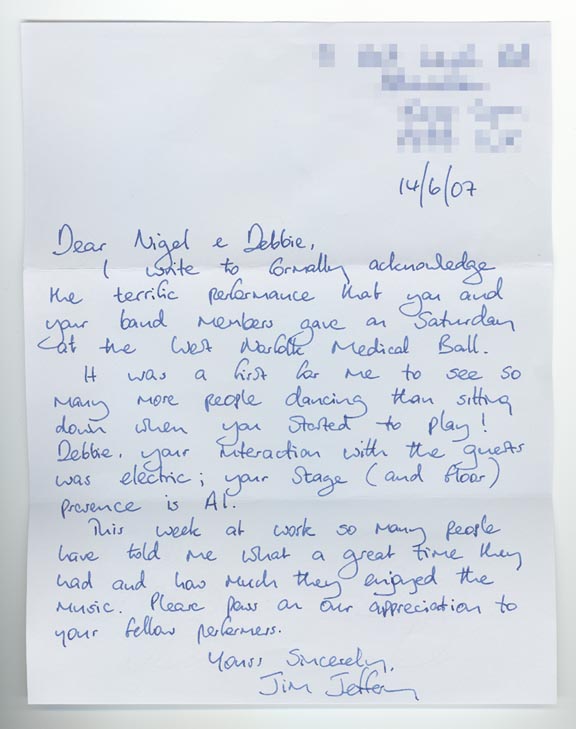 14/6/07
Dear Nigel & Debbie,
I write to formally acknowledge
the terrific performance that you and
your band members gave on Saturday
at the West Norfolk Medical Ball.
It was a first for me to see so
many more people dancing than sitting
down when you started to play!
Debbie, your interaction with the guests
was electric; your stage (and floor)
presence is A1.
This week at work so many people
have told me what a great time they
had and how much they enjoyed the
music. Please pass on our appreciation to
your fellow performers.
Yours Sincerely,
Jim Jeffery